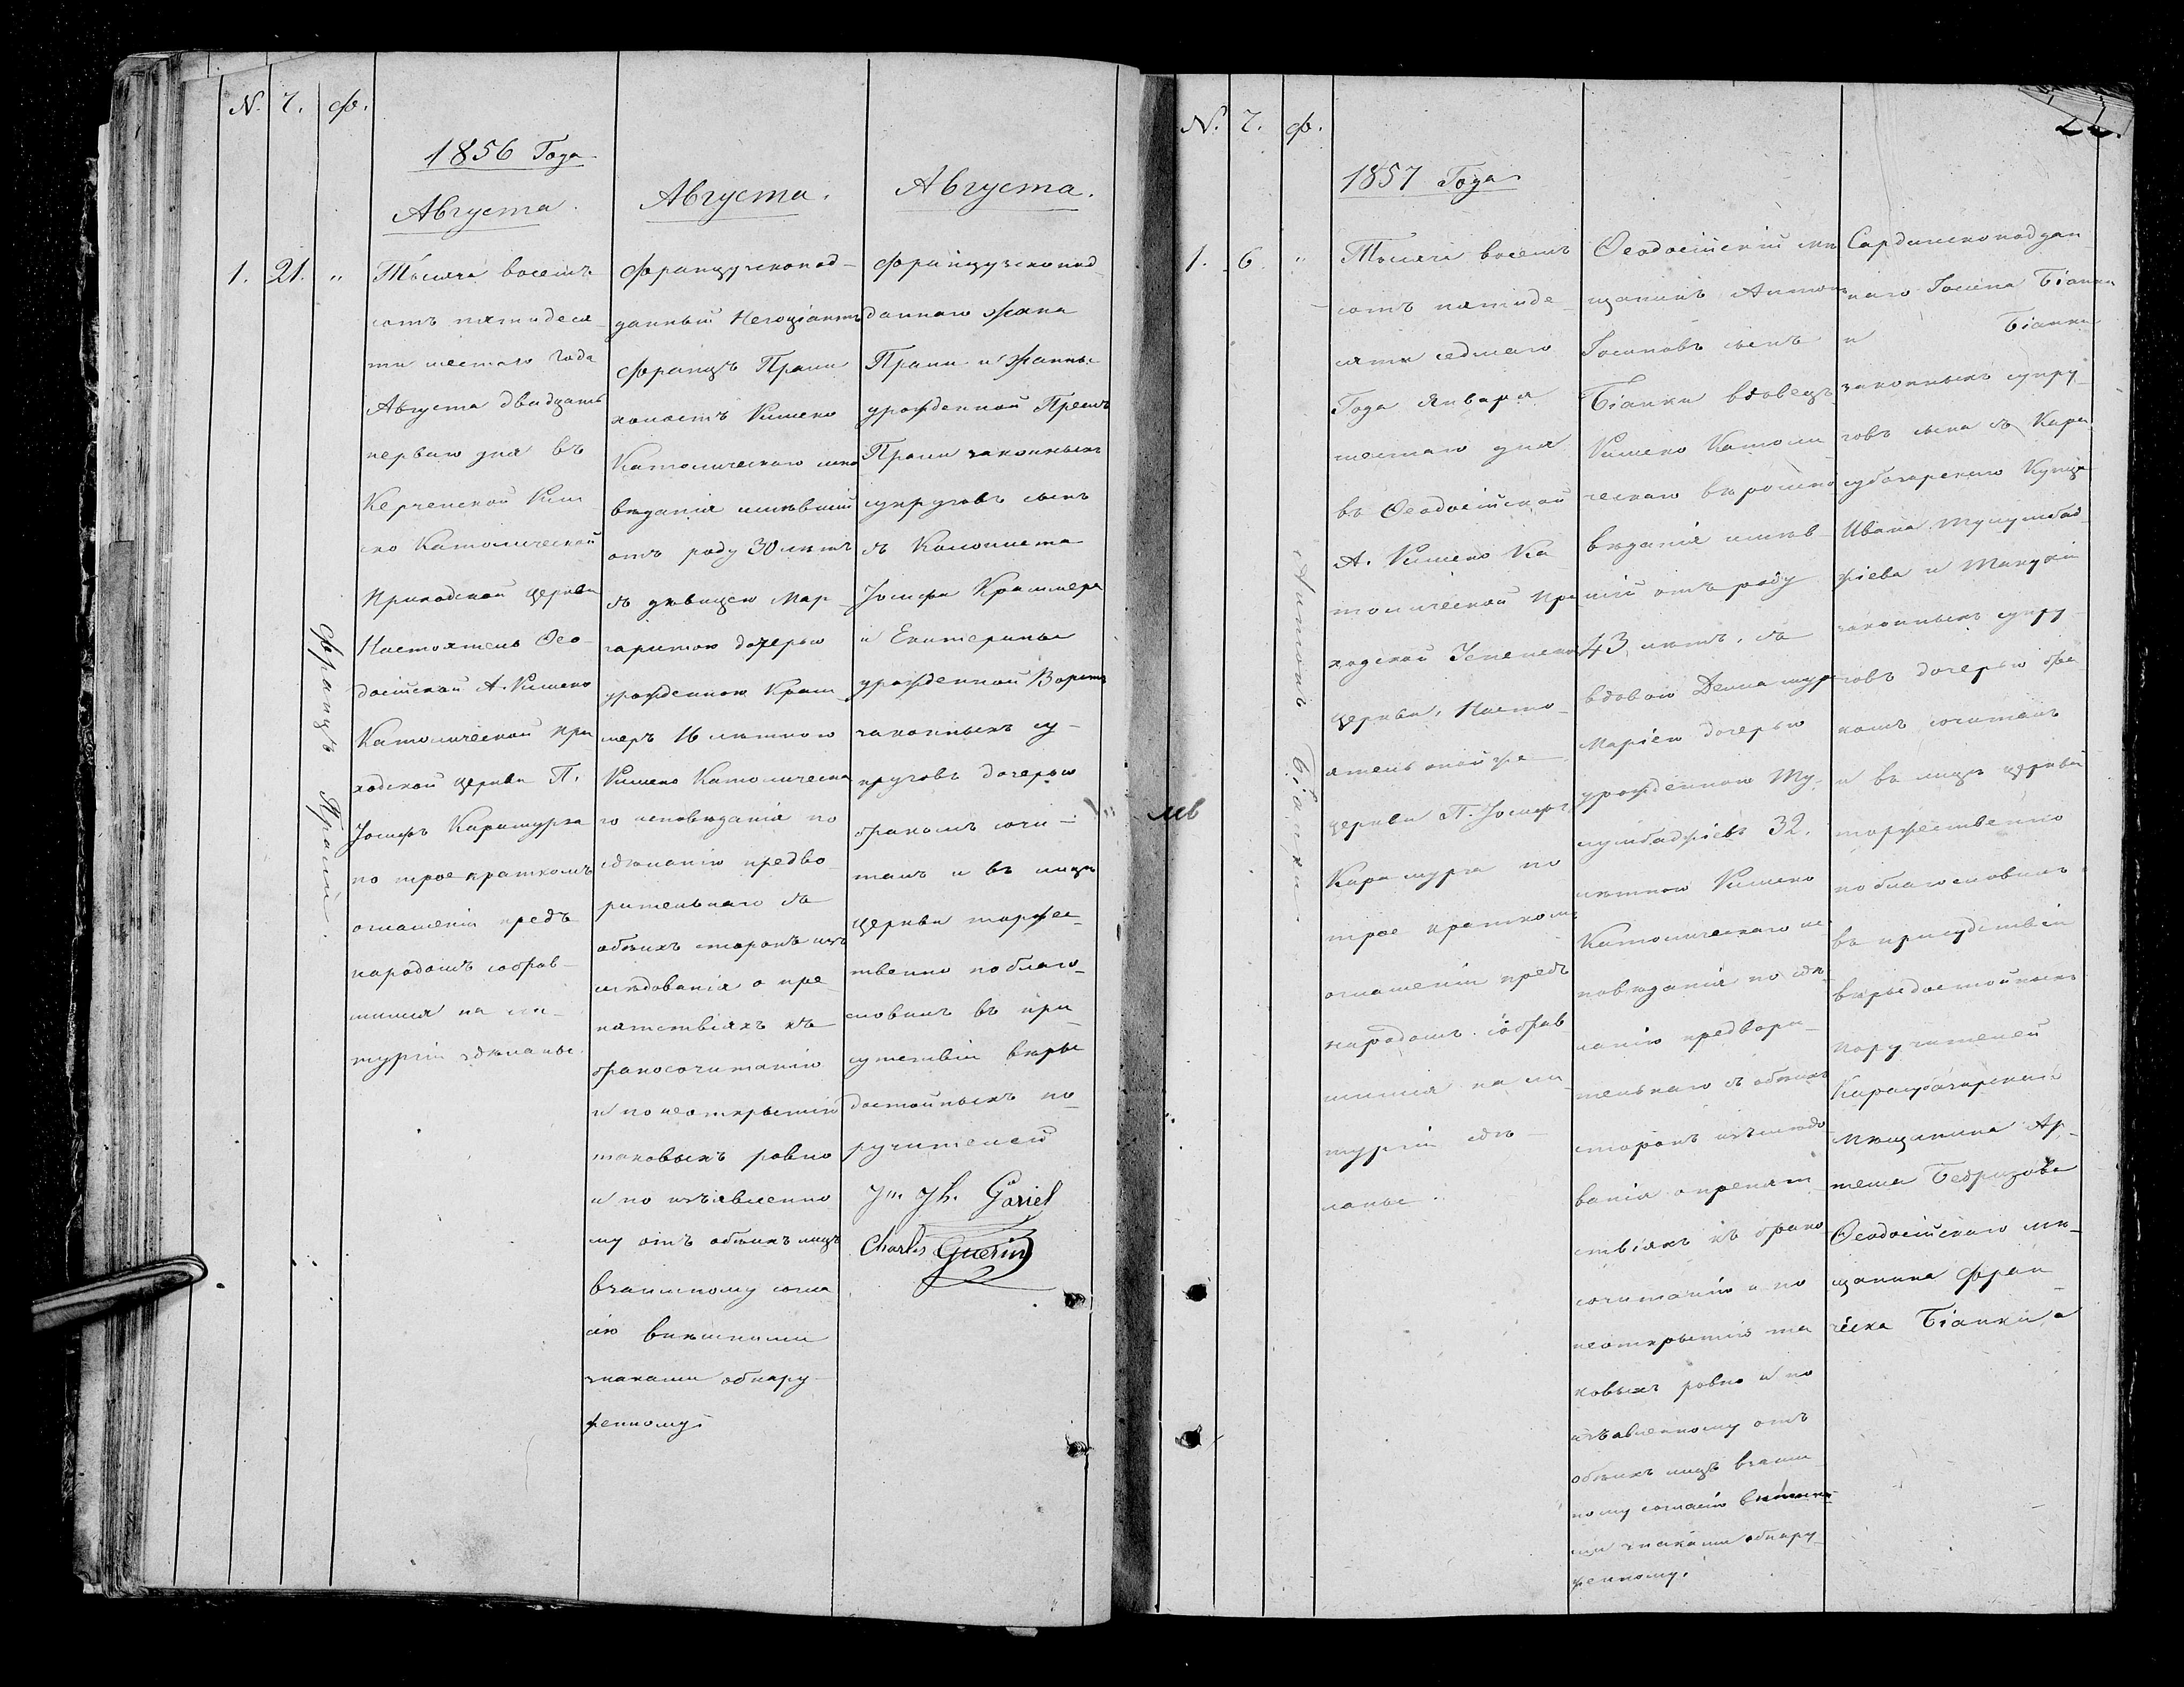 N. Ч. Ф.
1856 Года
Августа.
1. 21. "
Тысяча восемъ
сотъ пятидеся
ти шестаго Года
Августа двадцать
перваго дня въ
Керченской Рим
ско Католической
Приходской церкви
Настоятель Ѳео-
досійской А. Римско
Католической при
ходской церкви П.
Іосифъ Карамурза
по трое кратномъ
оглашеніи предъ
народомъ собрав-
шимся на ли-
тургіи зделаны.
Францъ Праши.
Августа.
Французскопод-
данный Негоціантъ
Францъ Праши
холостъ Римско
Католическаго испо
веданія имевшій
отъ роду 30 летъ
съ девицею Мар-
гаритою дочерью
урожденною Крам
меръ 16 летнею
Римско Католическа
го исповеданія по
зделанію предва
рительнаго съ
обеихъ сторонъ изъ
следованія о пре
пятствіяхъ къ
бракосочитанію
и по неоткрытію
таковыхъ равно
и по изъявленно
му отъ обеихъ лицъ
взаимному согла
сію внешними
знаками обнару-
женному.
Августа.
Французскопод
даннаго Жана
Праши и Жанны
урожденной
Праши законныхъ
супруговъ сынъ
съ Колониста
Іосифа Краммера
и Екатерины
урожденной
законныхъ су-
пруговъ дочерью
бракомъ сочи-
танъ и въ лице
церкви торжес-
твенно поблаго-
словилъ въ при-
сутствіи веры
достойныхъ по-
ручителей
Jh. Gariel
Charles Guerin
N. Ч. Ф.
1857 Года
1. 6. "
Тысяча восемъ
сотъ пятиде
сяти седмаго
Года Января
шестаго дня
въ Ѳеодосійской
А. Римско Ка
толической При
ходской Успенской
церкви, Насто-
ятель оной же
церкви П. Іосифъ
Карамурза по
трое кратномъ
оглашеніи предъ
народомъ собрав
шимся на ли
тургіи сде-
ланы.
Антонъ Біанки.
Ѳеодосійскій ме
щанинъ Антонъ
Іосиповъ сынъ
Біанки вдовецъ
Римско Католи
ческаго вероиспо
веданія имев-
шій отъ роду
43 летъ, съ
вдовою
Маріею дочерью
урожденною Ту
лумбаджіевъ 32.
летнею Римско
Католическаго ис
поведанія по зде
ланію предвари
тельнаго съ обеихъ
сторонъ изъследо
ванія о препят
ствіяхъ къ брако
сочитанію и по
неоткрытію та
ковыхъ равно и по
изъявленному отъ
обеихъ лицъ взаим
ному согласію внешни
ми знаками обнару
женному.
Сардинскоподдан
наго Іосипа Біанки
и Біанки
законныхъ супру-
говъ сына съ Кара
субазарскаго Купца
Ивана Тулумбад
жіева и
законныхъ супру
говъ дочерью бра
комъ сочиталъ
и въ лице церкви
торжественно
поблагословилъ
въ присудствіи
верыдостойныхъ
поручителей
Карасубазарскаго
мещанина Ар-
тема
Ѳеодосійскаго ме-
щанина Фран-
ческа Біанки